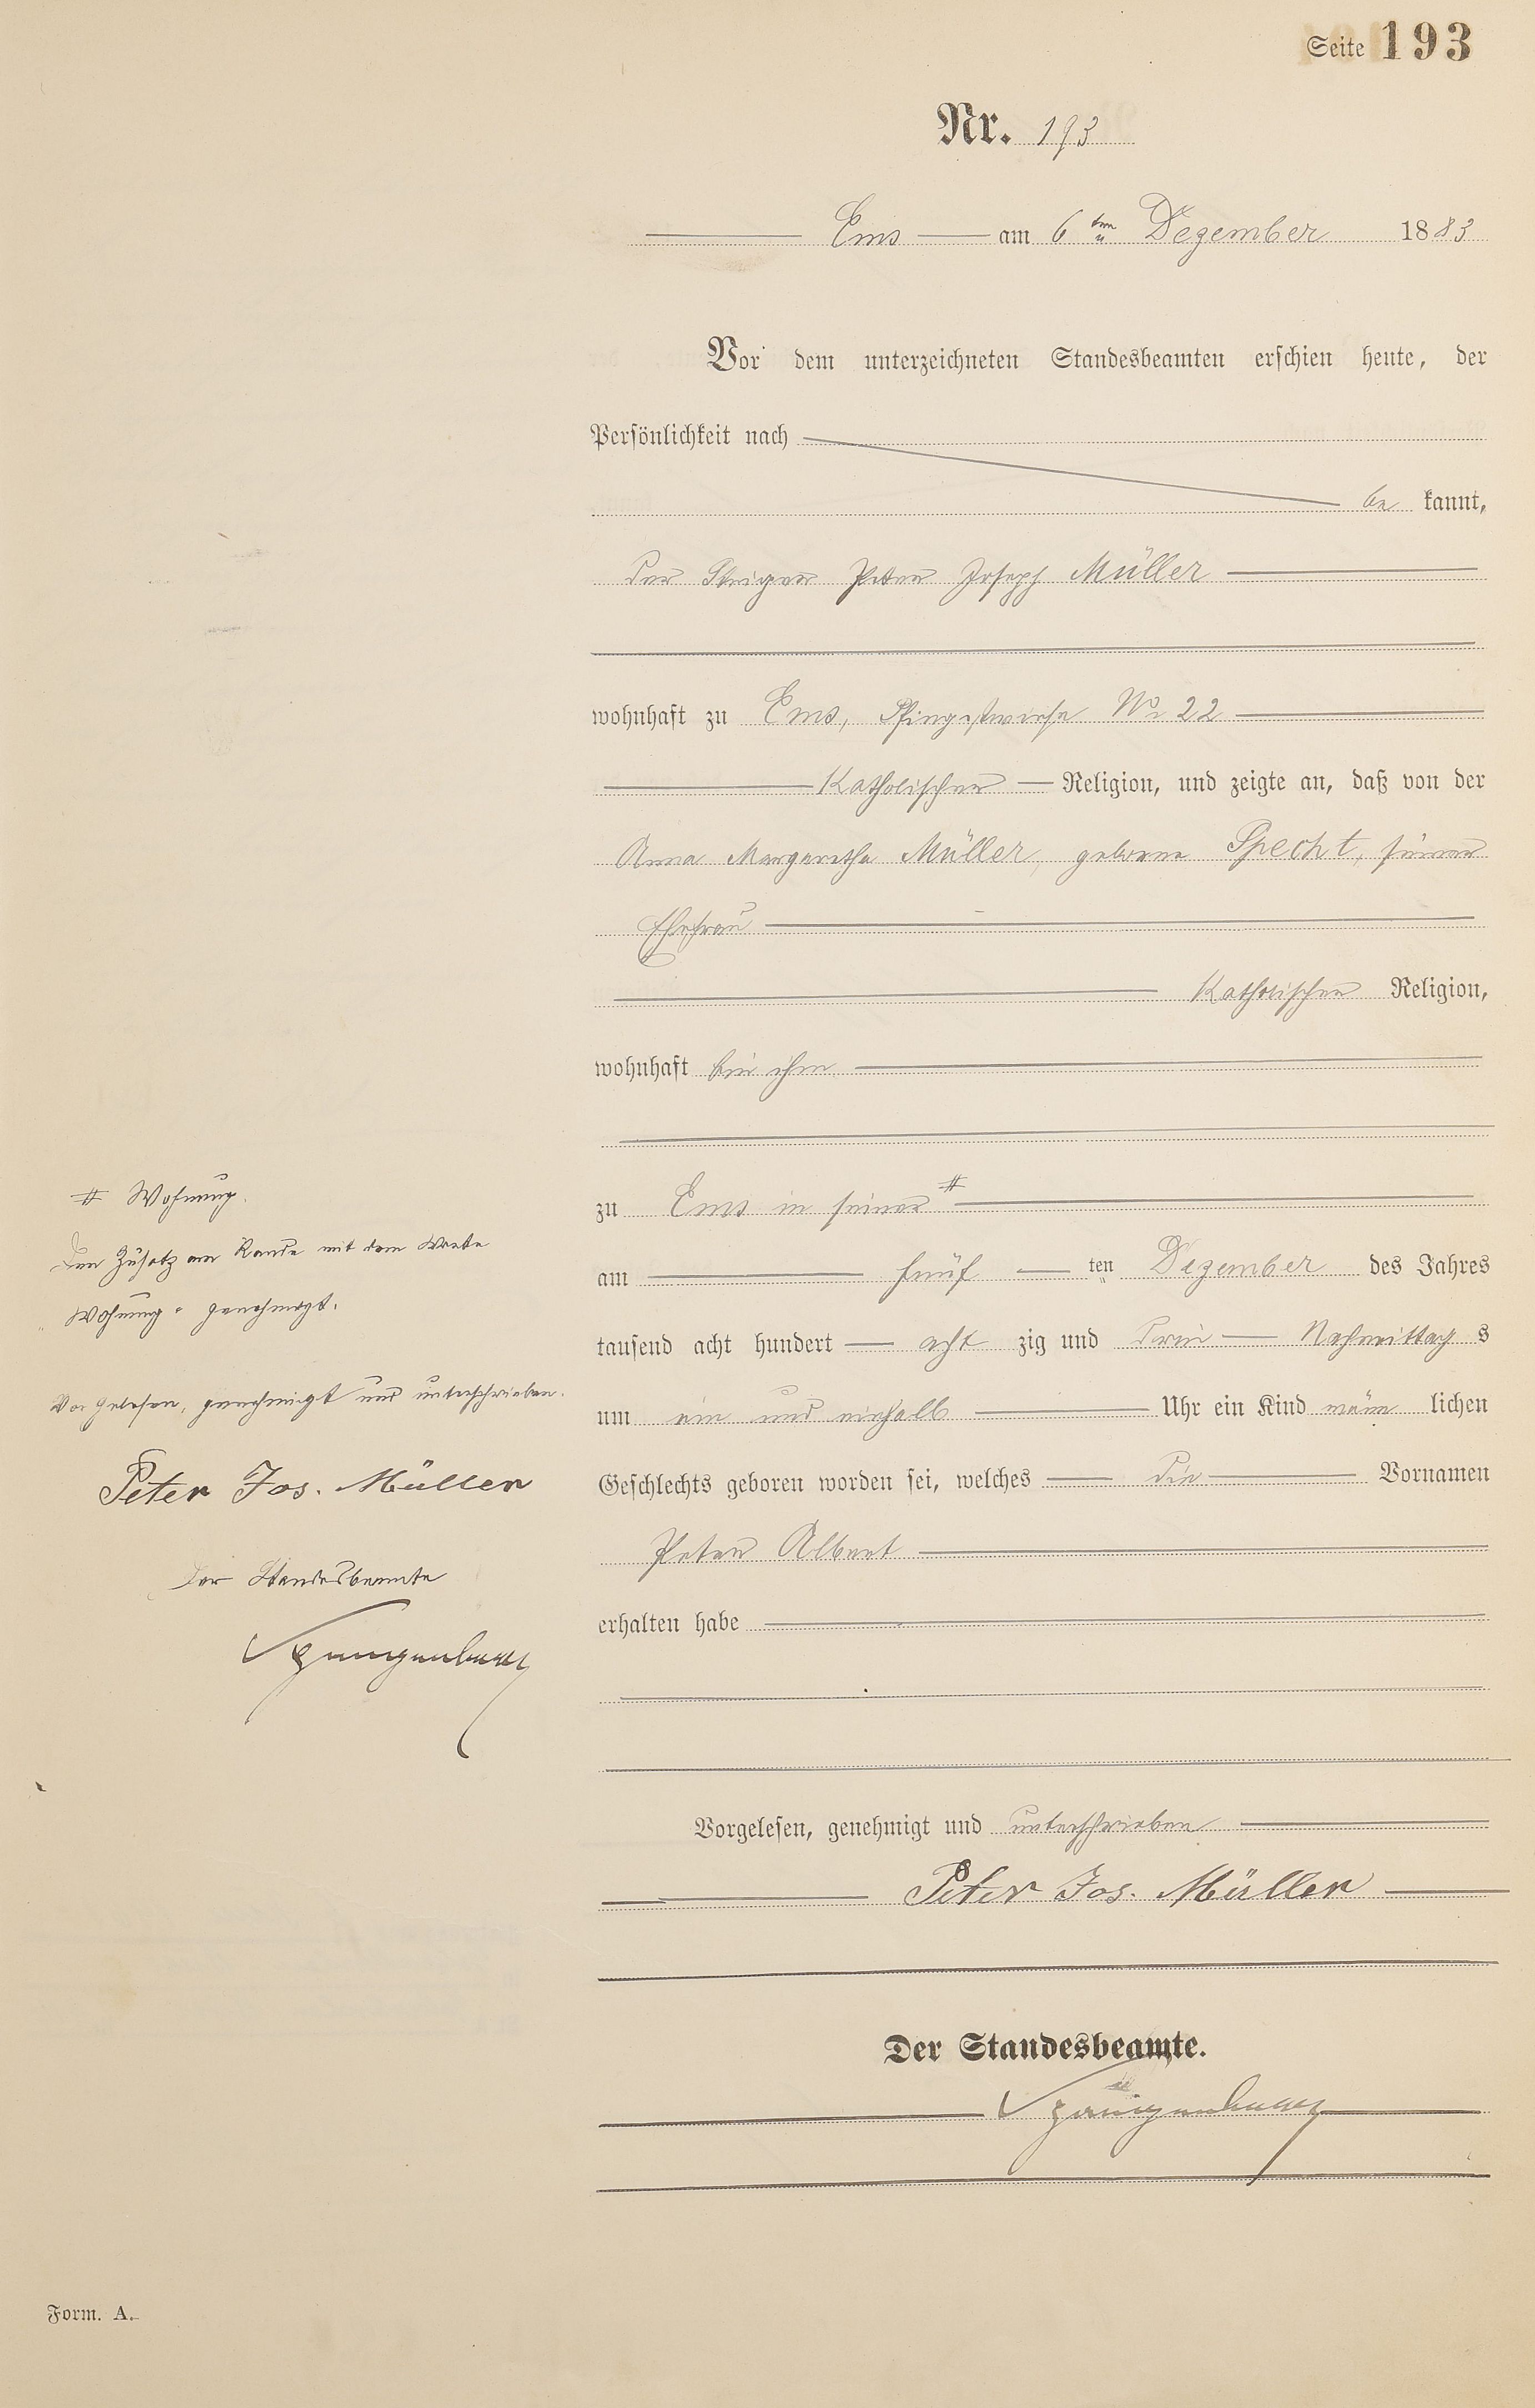 Seite 193
Nr. 193
Ems am 6ten Dezember 1883
Vor dem unterzeichneten Standesbeamten erschien heute, der
Persönlichkeit nach
be kannt,
der Steiger Peter Joseph Müller
wohnhaft zu Ems, Pfingstwiese No 22
Katholischer Religion, und zeigte an, daß von der
Anna Margaretha Müller, geborne Specht, seiner
Ehefrau
Katholischer Religion,
wohnhaft bei ihm
zu Ems in seiner #
am fünf ten Dezember des Jahres
tausend acht hundert acht zig und drei Nachmittag s
um ein und einhalb Uhr ein Kind männ lichen
Geschlechts geboren worden sei, welches die Vornamen
Peter Albert
erhalten habe
Vorgelesen, genehmigt und unterschrieben
Peter Jos. Müller
Der Standesbeamte.
# Wohnung.
Den Zusatz am Rande mit dem Worte
Wohnung genehmigt.
Vorgelesen, genehmigt und unterschrieben.
Peter Jos. Müller
Der Standesbeamte
Form. A.